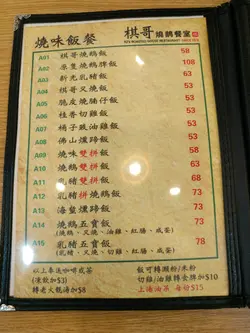 燒味飯餐
棋哥燒鵝餐室
A01 棋哥燒鵝飯 58
A02 原隻燒鵝脾飯 108
A03 新光乳豬飯 63
A04 棋哥燒肉飯 53
A05 脆皮燒腩仔飯 53
A06 桂香切雞飯 53
A07 梢子豉油雞飯 53
A08 佛山燻蹄飯 53
A09 燒味雙拼飯 58
A10 燒鵝雙拼飯 63
A11 乳豬雙拼飯 68
A12 乳豬拼燒鵝飯 73
A13 海蜇燻蹄飯 73
A14 燒鵝五寶飯 73
(燒鵝、叉燒、油雞、紅腸、咸蛋)
A15 乳豬五寶飯 78
(乳豬、叉燒、油雞、紅腸、咸蛋)
以上奉送咖啡或茶
(凍飲加$3)
轉老火靚湯加$8
飯可轉瀨粉/米粉
切雞/油雞轉食髀加$10
上湯油菜 每份$15